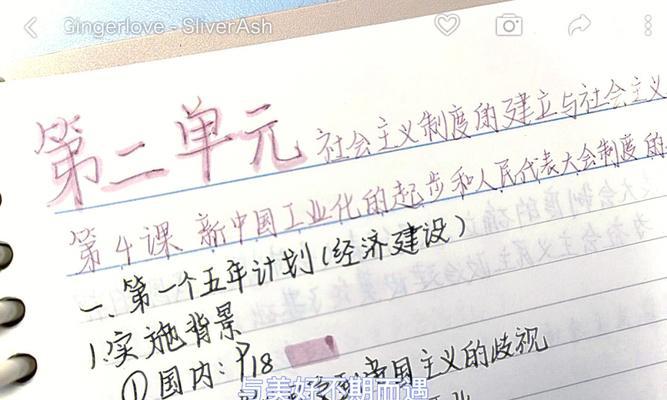 Gingerlove - SliverAsh
第二单元 社会主义制度的建立与社会主义
第4课 新中国工业化的起步和人民代表大会制度的
一、第一个五年计划(经济建设)
1.实施背景
①国内:P18
帝国主义的歧视
与美好不期而遇